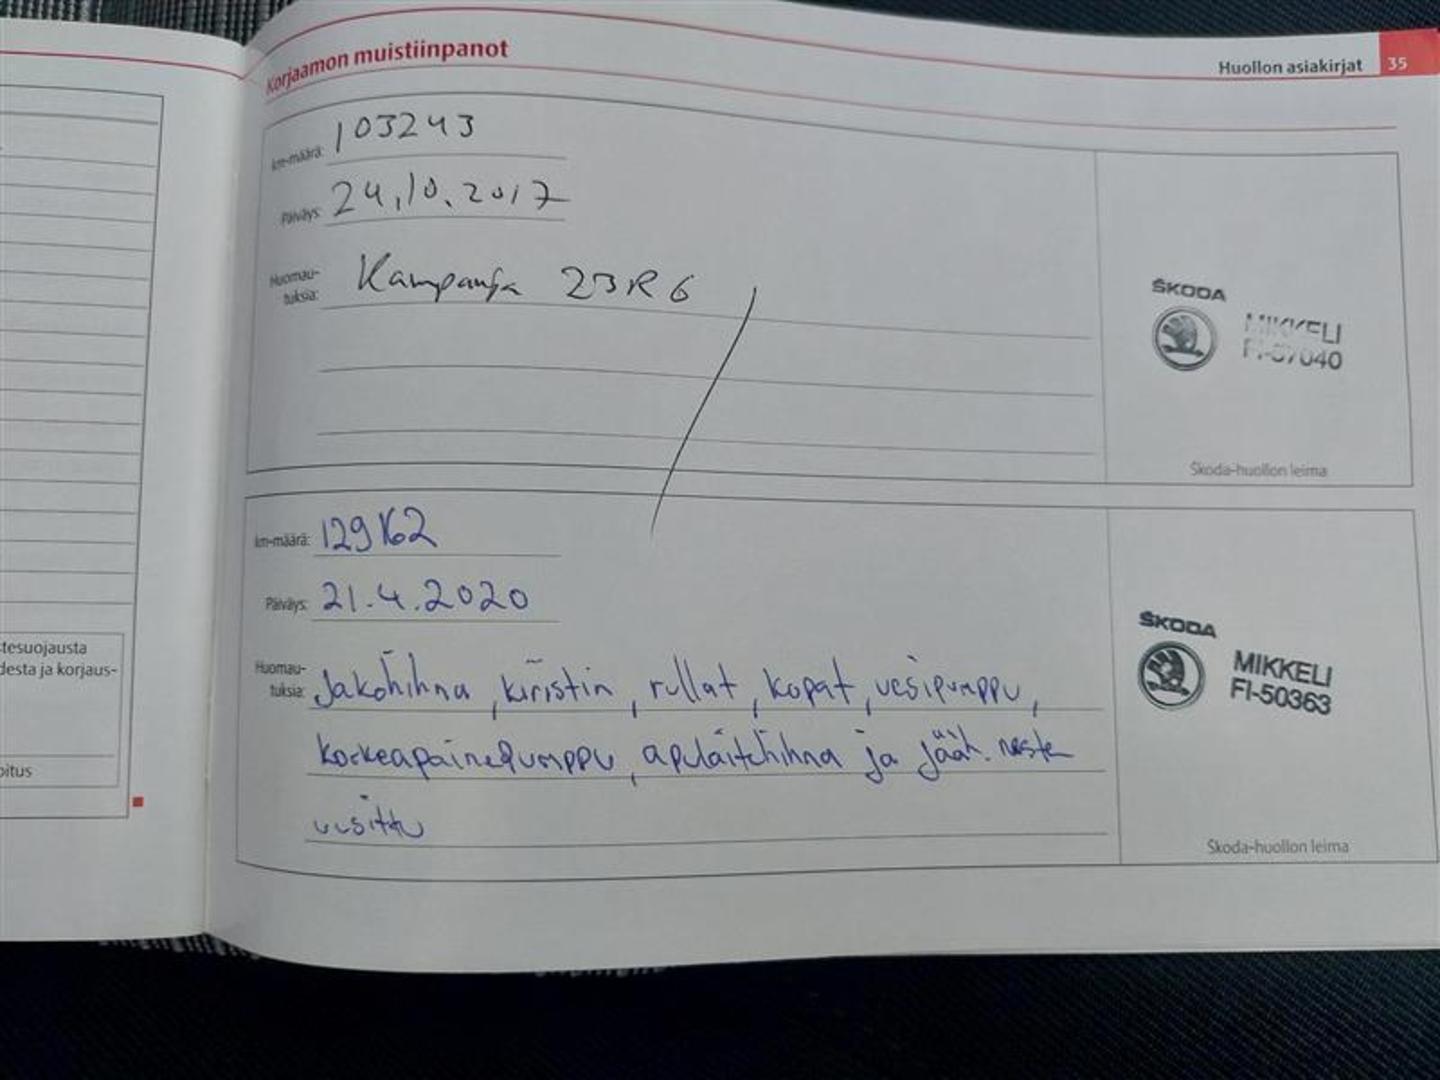 Korjaamon muistiinpanot
Huollon asiakirjat 35
km-määrä: 103243
Päiväys: 24.10.2017
Huomau-
tuksia: Kampanja 23R6
ŠKODA
MIKKELI
FI-57040
Škoda-huollon leima
km-määrä: 129162
Päiväys: 21.4.2020
Huomau-
tuksia: Jakohihna, kiristin, rullat, kopat, vesipumppu,
korkeapainepumppu, apulaitehihna ja jääh. neste
uusittu
ŠKODA
MIKKELI
FI-50363
Škoda-huollon leima
tesuojausta
desta ja korjaus-
oitus